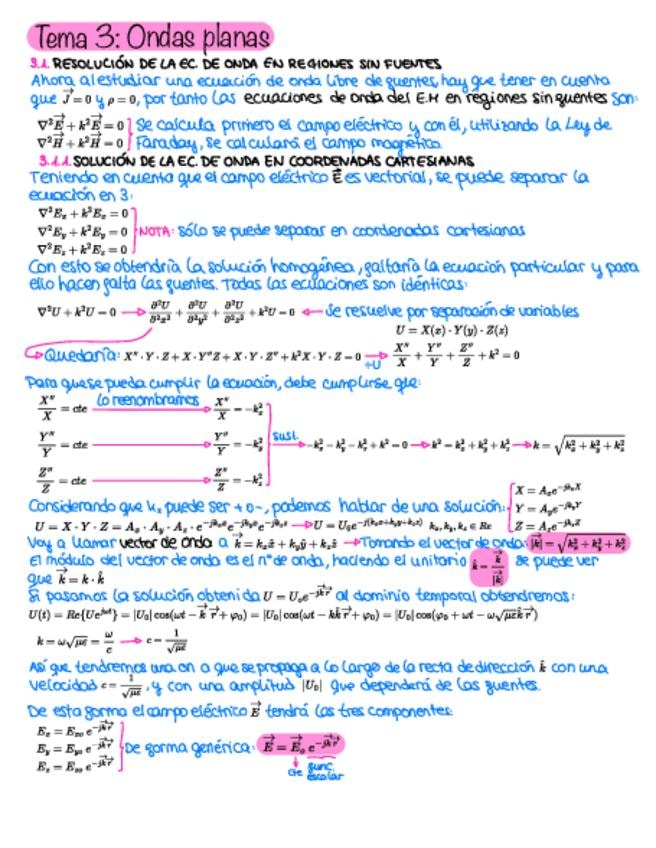 Tema 3: Ondas planas
3.1. RESOLUCIÓN DE LA EC. DE ONDA EN REGIONES SIN FUENTES
Ahora al estudiar una ecuación de onda libre de fuentes, hay que tener en cuenta
que J⃗ = 0 y ρ = 0, por tanto las ecuaciones de onda del E.H en regiones sin fuentes son:
∇²E⃗ + k²E⃗ = 0 Se calcula primero el campo eléctrico y con él, utilizando la Ley de
∇²H⃗ + k²H⃗ = 0 Faraday, se calculará el campo magnético.
3.1.1. SOLUCIÓN DE LA EC. DE ONDA EN COORDENADAS CARTESIANAS
Teniendo en cuenta que el campo eléctrico E⃗ es vectorial, se puede separar la
ecuación en 3:
∇²Eₓ + k²Eₓ = 0
∇²E_y + k²E_y = 0 NOTA: sólo se puede separar en coordenadas cartesianas
∇²E_z + k²E_z = 0
Con esto se obtendría la solución homogénea, faltaría la ecuación particular y para
ello hacen falta las fuentes. Todas las ecuaciones son idénticas:
∇²U + k²U = 0 → ∂²U/∂²x² + ∂²U/∂²y² + ∂²U/∂²z² + k²U = 0 ← Se resuelve por separación de variables
U = X(x) · Y(y) · Z(z)
Quedaría: X″ · Y · Z + X · Y″Z + X · Y · Z″ + k²X · Y · Z = 0 →÷U X″/X + Y″/Y + Z″/Z + k² = 0
Para que se pueda cumplir la ecuación, debe cumplirse que:
X″/X = cte lo renombramos → X″/X = −kₓ²
Y″/Y = cte → Y″/Y = −k_y² sust. → −kₓ² − k_y² − k_z² + k² = 0 → k² = kₓ² + k_y² + k_z² → k = √(kₓ² + k_y² + k_z²)
Z″/Z = cte → Z″/Z = −k_z²
Considerando que kₓ puede ser + o −, podemos hablar de una solución: X = Aₓe^(−jkₓX)
Y = A_y e^(−jk_yY)
U = X · Y · Z = Aₓ · A_y · A_z · e^(−jkₓx) e^(−jk_y y) e^(−jk_z z) → U = U₀e^(−j(kₓx+k_y y+k_z z)) kₓ, k_y, k_z ∈ Re Z = A_z e^(−jk_zZ)
Voy a llamar vector de onda a k⃗ = kₓx̂ + k_yŷ + k_zẑ → Tomando el vector de onda: |k⃗| = √(kₓ² + k_y² + k_z²)
El módulo del vector de onda es el nº de onda, haciendo el unitario k̂ = k⃗/|k⃗| se puede ver
que k⃗ = k · k̂
Si pasamos la solución obtenida U = U₀e^(−jk⃗r⃗) al dominio temporal obtendremos:
U(t) = Re{Ue^(jωt)} = |U₀| cos(ωt − k⃗ r⃗ + φ₀) = |U₀| cos(ωt − kk̂ r⃗ + φ₀) = |U₀| cos(φ₀ + ωt − ω√με k̂ r⃗)
k = ω√με = ω/c → c = 1/√με
Así que tendremos una on a que se propaga a lo largo de la recta de dirección k̂ con una
velocidad c = 1/√με, y con una amplitud |U₀| que dependerá de las fuentes.
De esta forma el campo eléctrico E⃗ tendrá las tres componentes:
Eₓ = Eₓ₀ e^(−jk⃗r⃗)
E_y = E_y₀ e^(−jk⃗r⃗) De forma genérica: E⃗ = E⃗₀ e^(−jk⃗r⃗)
E_z = E_z₀ e^(−jk⃗r⃗) cte func. escalar